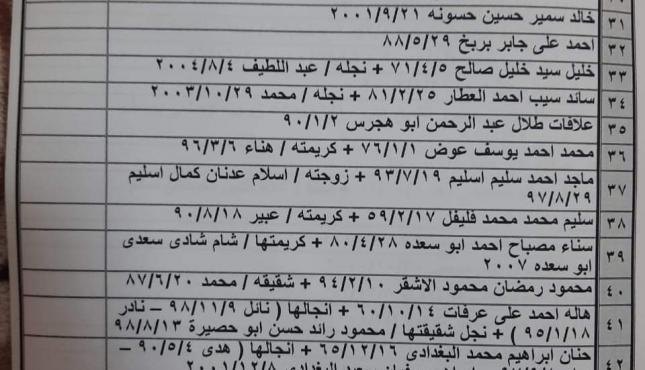 ٣١ خالد سمير حسين حسونه ٢٠٠١/٩/٢١
٣٢ احمد على جابر بربخ ٨٨/٥/٢٩
٣٣ خليل سيد خليل صالح ٧١/٤/٥ + نجله / عبد اللطيف ٢٠٠٤/٨/٤
٣٤ سائد سيب احمد العطار ٨١/٢/٢٥ + نجله / محمد ٢٠٠٣/١٠/٢٩
٣٥ علافات طلال عبد الرحمن ابو هجرس ٩٠/١/٢
٣٦ محمد احمد يوسف عوض ٧٦/١/١ + كريمته / هناء ٩٦/٣/٦
٣٧ ماجد احمد سليم اسليم ٩٣/٧/١٩ + زوجته / اسلام عدنان كمال اسليم
٩٧/٨/٢٩
٣٨ سليم محمد محمد فليفل ٥٩/٢/١٧ + كريمته / عبير ٩٠/٨/١٨
٣٩ سناء مصباح احمد ابو سعده ٨٠/٤/٢٨ + كريمتها / شام شادى سعدى
ابو سعده ٢٠٠٧
٤٠ محمود رمضان محمود الاشقر ٩٤/٢/١٠ + شقيقه / محمد ٨٧/٦/٢٠
٤١ هاله احمد على عرفات ٦٠/١٠/١٤ + انجالها ( نائل ٩٨/١١/٩ – نادر
٩٥/١/١٨ ) + نجل شقيقتها / محمود رائد حسن ابو حصيرة ٩٨/٨/١٣
٤٢ حنان ابراهيم محمد البغدادى ٦٥/١٢/١٦ + انجالها ( هدى ٩٠/٥/٤ –
البغدادى ٢٠٠١/١٢/٨